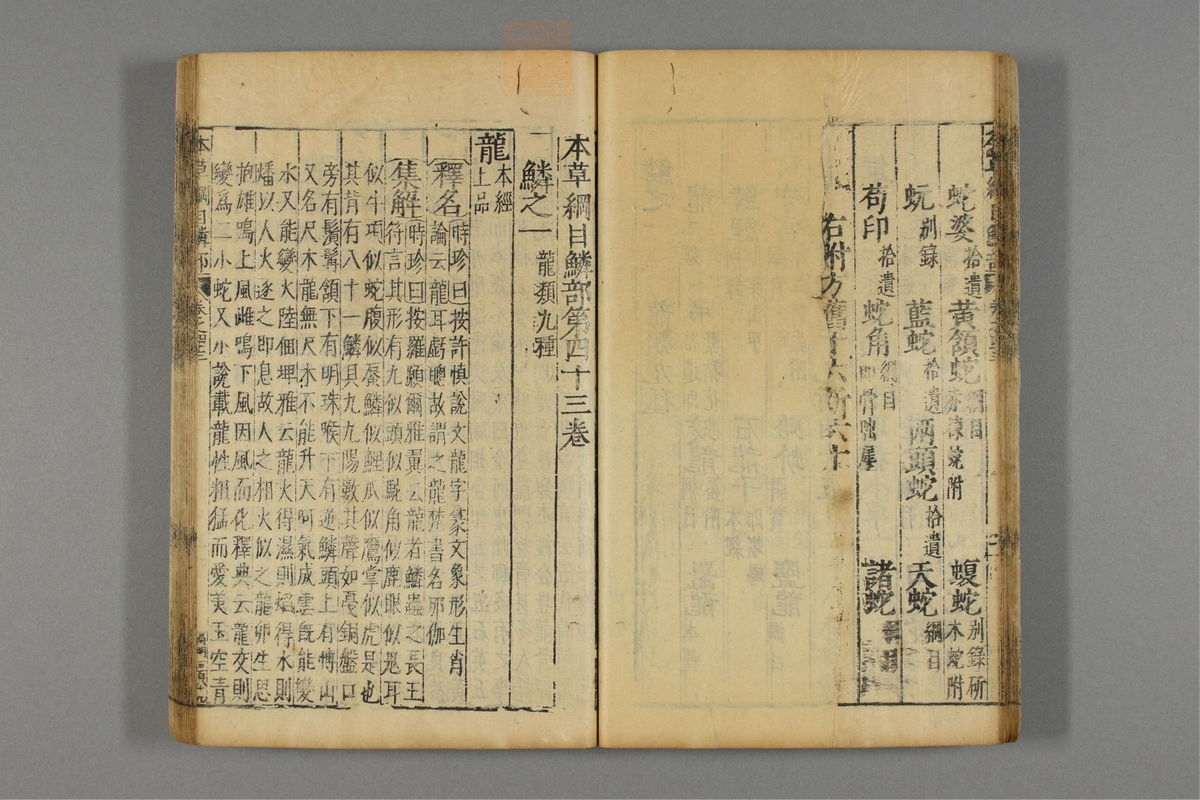 蛇婆拾遺 黃頷蛇綱目 赤楝蛇附 蝮蛇別錄 木蛇附
蚖別錄 藍蛇拾遺 兩頭蛇拾遺 天蛇綱目
苟印拾遺 蛇角綱目 即骨咄犀 諸蛇綱目
右附方舊十六新六十
本草綱目鱗部第四十三卷
鱗之一 龍類九種
龍本經上品
釋名時珍曰按許慎說文龍字篆文象形生肖
論云龍耳虧聰故謂之龍梵書名那伽
集解時珍曰按羅願爾雅翼云龍者鱗蟲之長王
符言其形有九似頭似駝角似鹿眼似鬼耳
似牛項似蛇腹似蜃鱗似鯉爪似鷹掌似虎是也
其背有八十一鱗具九九陽數其聲如戛銅盤口
旁有鬚髯頷下有明珠喉下有逆鱗頭上有博山
又名尺木龍無尺木不能升天呵氣成雲既能變
水又能變火陸佃埤雅云龍火得濕則焰得水則
燔以人火逐之即息故人之相火似之龍卵生思
抱雄鳴上風雌鳴下風因風而化釋典云龍交則
變爲二小蛇又小說載龍性粗猛而愛美玉空青